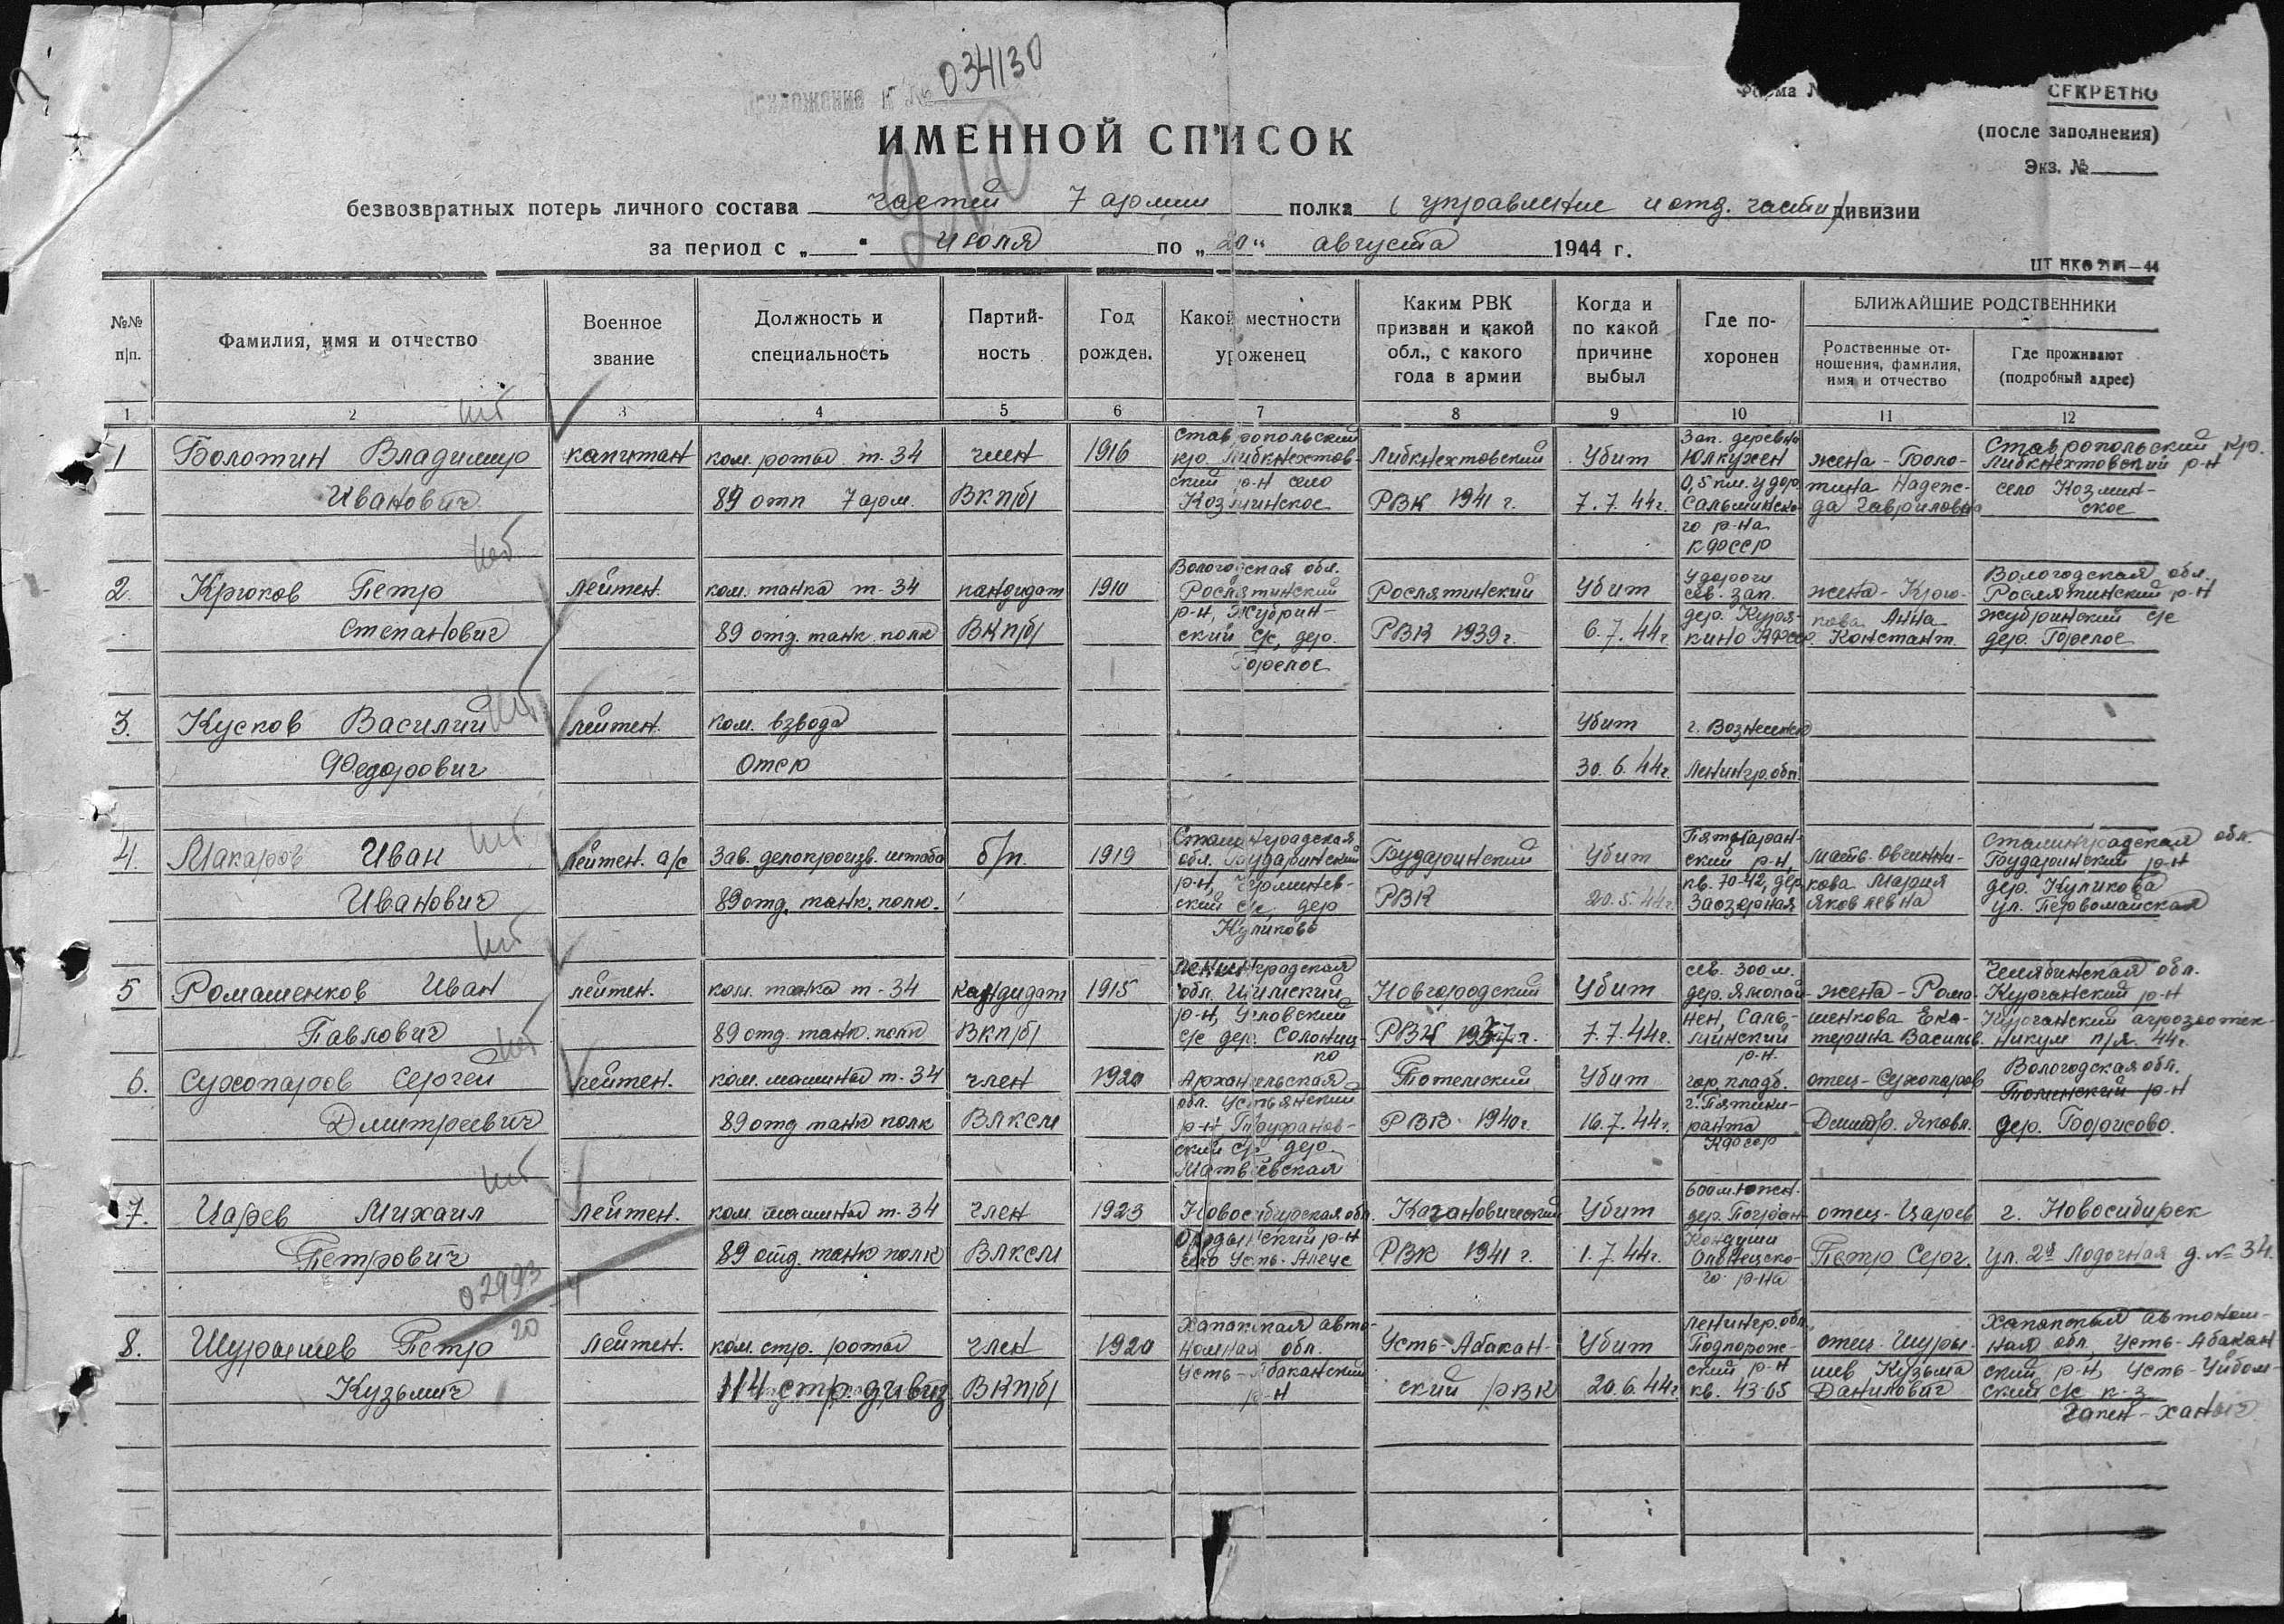 Приложение к № 034130
Форма №
СЕКРЕТНО
(после заполнения)
Экз. №
ИМЕННОЙ СПИСОК
безвозвратных потерь личного состава частей 7 армии полка (управление и отд. части) дивизии
за период с „ “ июля по „20“ августа 1944 г.
№№ п/п.
Фамилия, имя и отчество
Военное звание
Должность и специальность
Партий-ность
Год рожден.
Какой местности уроженец
Каким РВК призван и какой обл., с какого года в армии
Когда и по какой причине выбыл
Где по-хоронен
БЛИЖАЙШИЕ РОДСТВЕННИКИ
Родственные от-ношения, фамилия, имя и отчество
Где проживают (подробный адрес)
1 2 3 4 5 6 7 8 9 10 11 12
1 Болотин Владимир Иванович
капитан
ком. роты т-34
89 отп 7 арм.
член
ВКП(б)
1916
Ставропольский
кр. Либкнехтов-
ский р-н село
Козминское
Либкнехтовский
РВК 1941 г.
Убит
7.7.44г.
Зап. деревни
Юлкужен
0,5 км. у дор.
Сальминско-
го р-на
КФССР
жена - Боло-
тина Надеж-
да Гавриловна
Ставропольский кр.
Либкнехтовский р-н
село Козмин-
ское
2. Крюков Петр
Степанович
лейтен.
ком. танка т-34
89 отд. танк. полк
кандидат
ВКП(б)
1910
Вологодская обл.
Рослятинский
р-н, Жубрин-
ский с/с, дер.
Горелое
Рослятинский
РВК 1939г.
Убит
6.7.44г
У дороги
сев. зап.
дер. Куря-
кино КФССР
жена - Крю-
кова Анна
Констант.
Вологодская обл.
Рослятинский р-н
Жубринский с/с
дер. Горелое
3. Кусков Василий
Федорович
лейтен.
ком. взвода
Убит
30.6.44г.
г. Вознесенье
Ленингр. обл.
4. Макаров Иван
Иванович
лейтен. а/с
Зав. делопроизв. штаба
89 отд. танк. полк.
б/п.
1919
Сталинградская
обл. Бударинский
р-н,
ский с/с, дер
Куликово
Бударинский
РВК
Убит
20.5.44г.
ский р-н,
кв. 70-42, дер
Заозерная
мать-Овчинни-
кова Мария
Яковлевна
Сталинградская обл.
Бударинский р-н
дер. Куликова
ул. Первомайская
5 Ромашенков Иван
Павлович
лейтен.
ком. танка т-34
89 отд. танк. полк
кандидат
ВКП(б)
1915
Ленинградская
обл. Шимский
р-н, Угловский
с/с дер. Солониц-
ко
Новгородский
РВК 1937г.
Убит
7.7.44г.
сев. 300 м.
нен, Саль-
минский
р-н.
жена - Рома-
шенкова Ека-
терина Васильв.
Челябинская обл.
Курганский р-н
Курганский агрозоотех-
никум п/я. 44г.
6. Сухопаров Сергей
Дмитриевич
лейтен.
ком. машины т-34
89 отд танк полк
член
ВЛКСМ
1920
Архангельская
обл. Устьянский
ский с/с дер.
Матвеевская
Тотемский
РВК 1940г.
Убит
16.7.44г.
гор. кладб.
г. Питкя-
ранта
КФССР
отец-Сухопаров
Дмитр. Яковл.
Вологодская обл.
дер. Борисово.
7. Царев Михаил
Петрович
лейтен.
ком. машины т-34
89 отд. танк полк
член
ВЛКСМ
1923
Новосибирская обл.
Ордынский р-н
село Усть-Алеус
Кагановический
РВК 1941 г.
Убит
1.7.44г.
600 м. южн.
Кондуши
Олонецко-
го р-на
отец-Царев
Петр Серг.
г. Новосибирск
ул. 2я Лодочная д. № 34.
02993
20
8. Шурышев Петр
Кузьмич
лейтен.
ком. стр. роты
114 стр. дивиз
член
ВКП(б)
1920
Хакасская авто-
номная обл.
Усть-Абаканский
р-н
Усть-Абакан-
ский РВК
Убит
20.6.44г
Ленингр. обл.
Подпорож-
ский, р-н
кв. 43-65
отец-Шуры-
шев Кузьма
Данилович
Хакасская автоном-
ная обл, Усть-Абакан
ский р-н,
ский с/с к-з